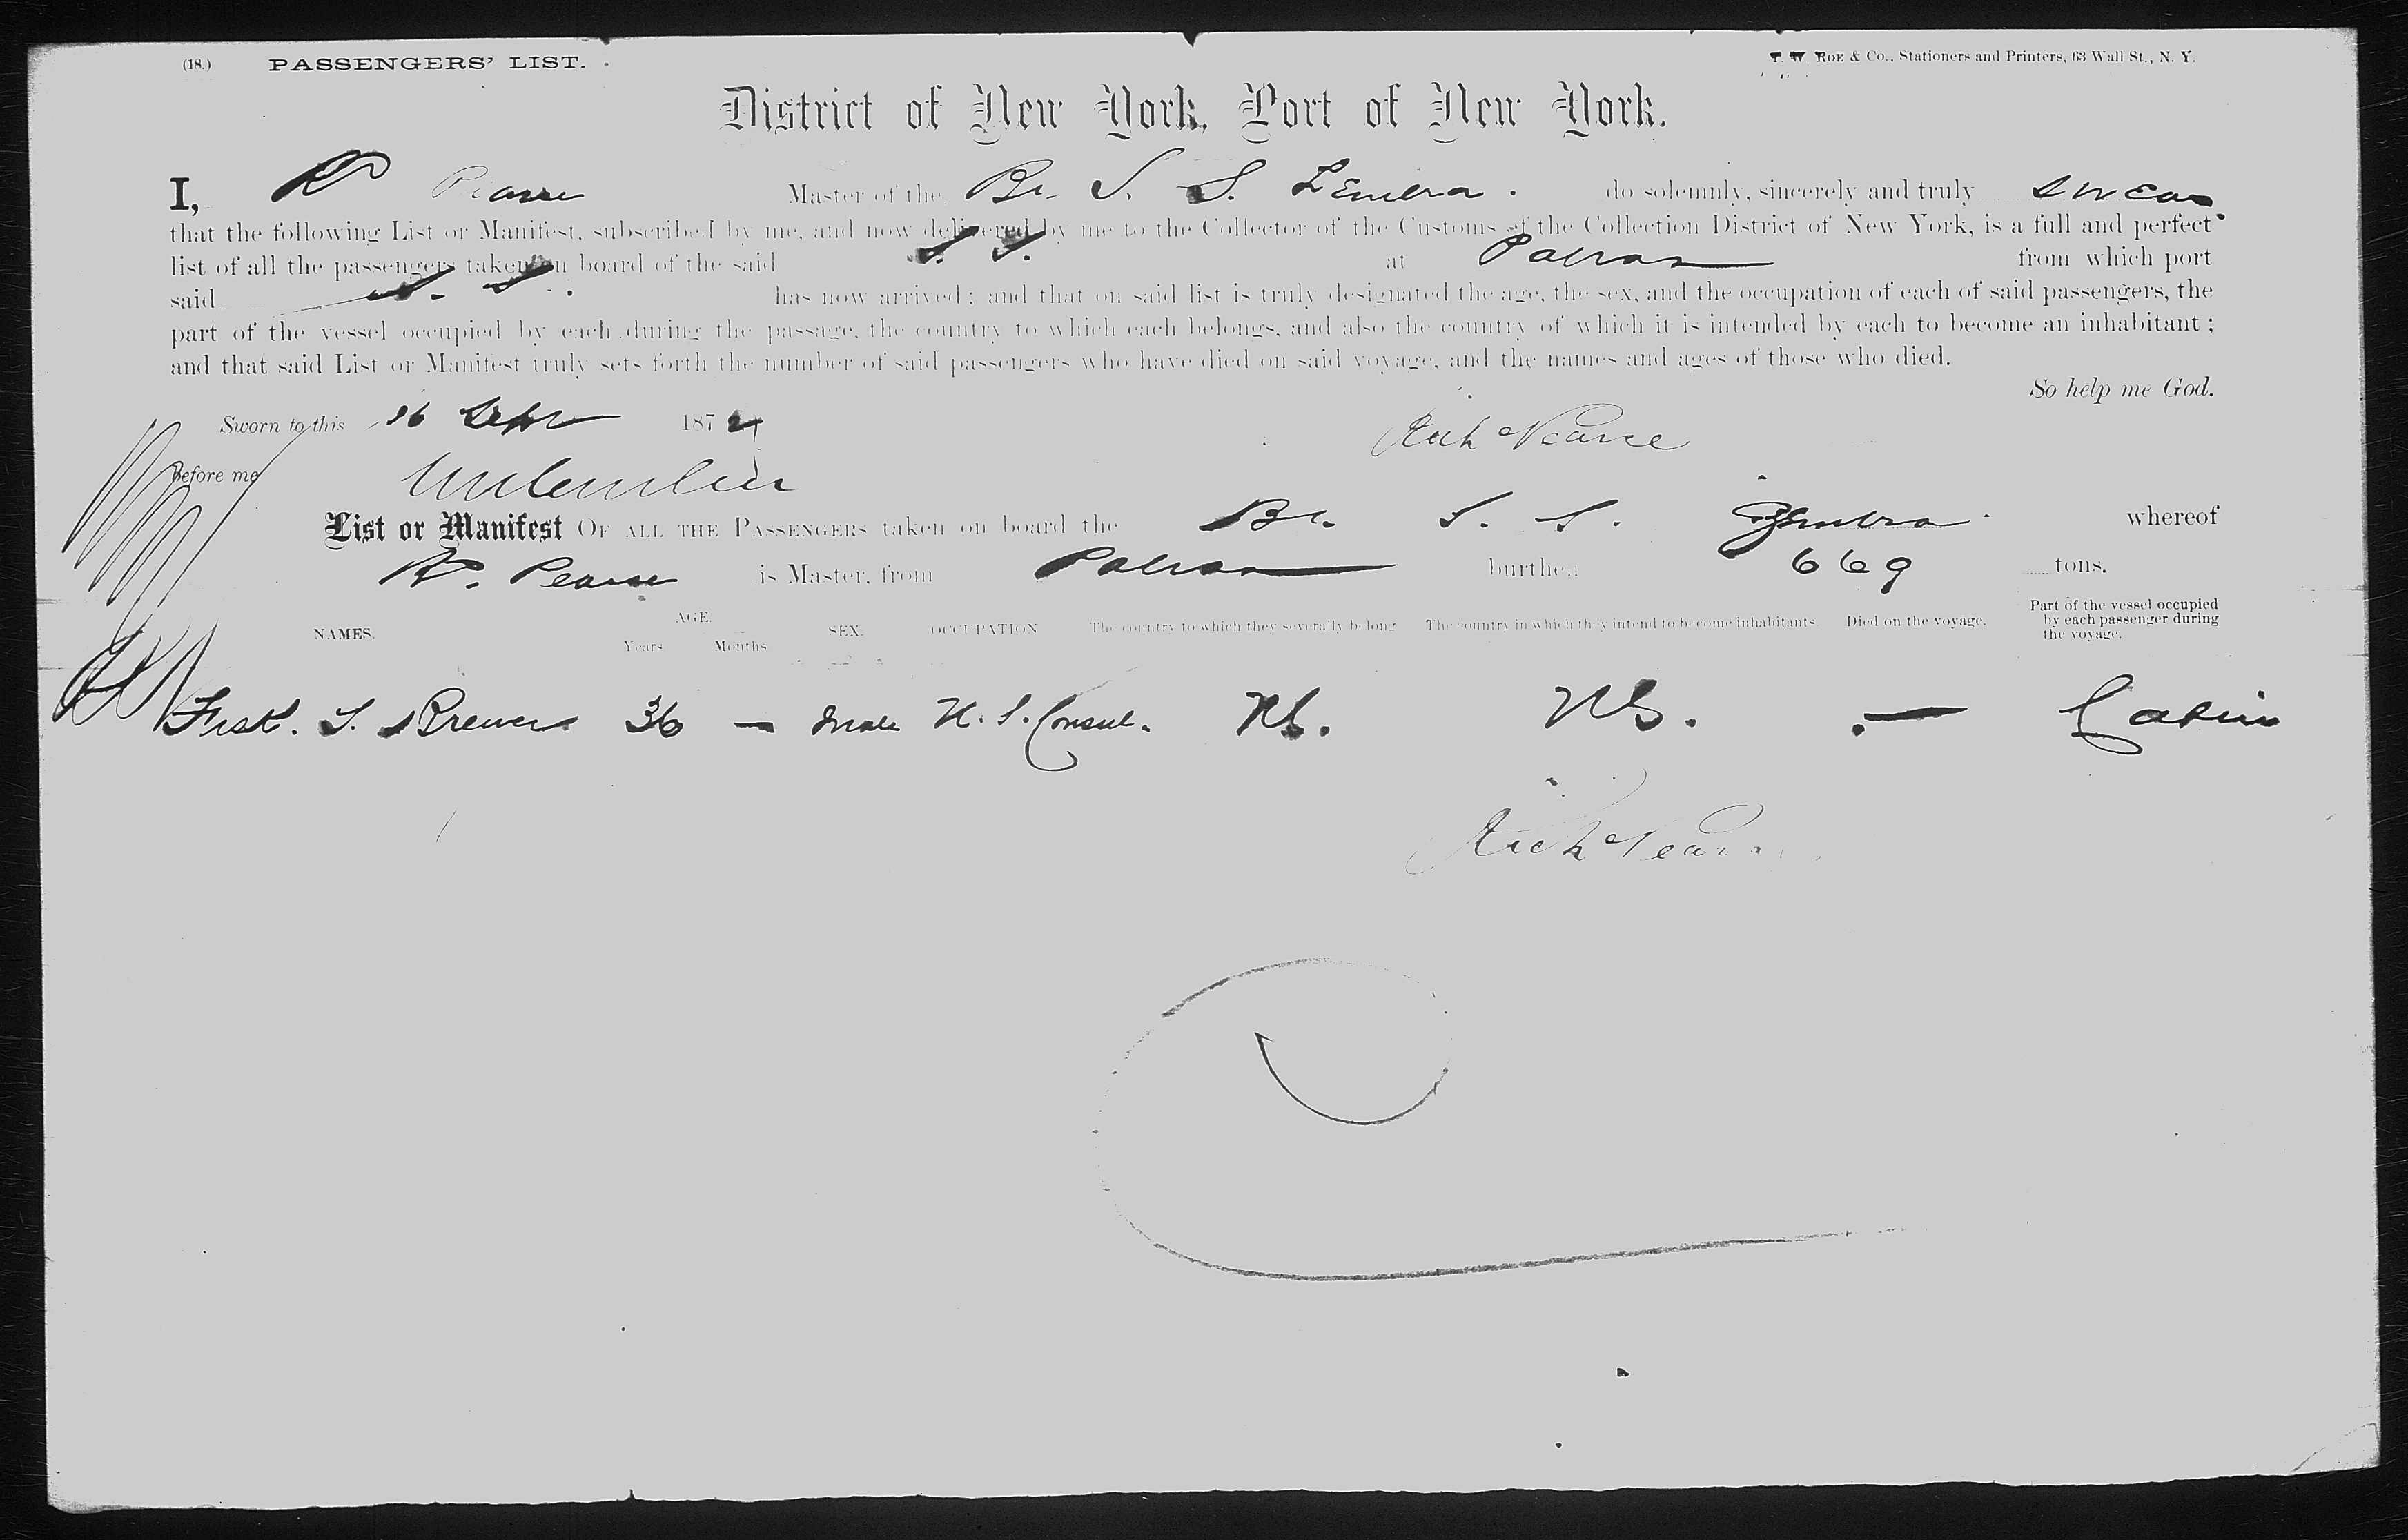 (18.) PASSENGERS' LIST. T. W. ROE & Co., Stationers and Printers, 63 Wall St., N. Y.
District of New York, Port of New York.
I, R Pearse Master of the Br. S. S. Zembra. do solemnly, sincerely and truly swear
that the following List or Manifest, subscribed by me, and now delivered by me to the Collector of the Customs of the Collection District of New York, is a full and perfect
list of all the passengers taken on board of the said S. S. at Patras from which port
said S. S. has now arrived; and that on said list is truly designated the age, the sex, and the occupation of each of said passengers, the
part of the vessel occupied by each during the passage, the country to which each belongs, and also the country of which it is intended by each to become an inhabitant;
and that said List or Manifest truly sets forth the number of said passengers who have died on said voyage, and the names and ages of those who died.
So help me God.
Sworn to this 16 Sepr 187 Rich Pearse
Before me
List or Manifest OF ALL THE PASSENGERS taken on board the Br. S. S. Zembra whereof
R. Pearse is Master, from Patras burthen 669 tons.
NAMES. AGE. Years Months SEX. OCCUPATION The country to which they severally belong The country in which they intend to become inhabitants. Died on the voyage. Part of the vessel occupied by each passenger during the voyage.
Fisk. P. Brewer 36 — male U. S. Consul. US. US. — Cabin
Rich Pearse